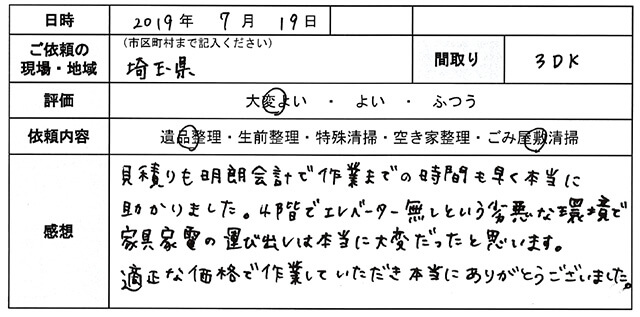 日時 2019年 7月 19日
ご依頼の現場・地域 (市区町村まで記入ください) 埼玉県 間取り 3DK
評価 大変よい ・ よい ・ ふつう
依頼内容 遺品整理・生前整理・特殊清掃・空き家整理・ごみ屋敷清掃
感想
見積りも明朗会計で作業までの時間も早く本当に
助かりました。4階でエレベーター無しという劣悪な環境で
家具家電の運び出しは本当に大変だったと思います。
適正な価格で作業していただき本当にありがとうございました。